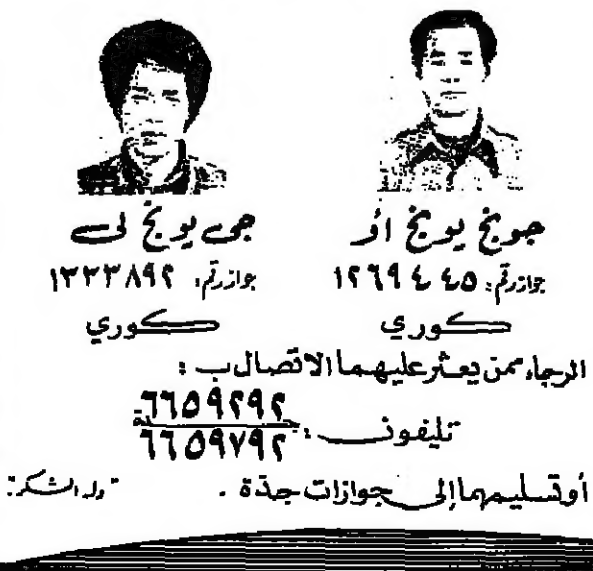 جونج يونج أو
جواز رقم: ١٢٦٩٤٤٥
كوري
جى يونج لى
جواز رقم: ١٣٣٣٨٩٢
كوري
الرجاء ممن يعثر عليهما الاتصال ب :
تليفون : جدة ٦٦٥٩٢٩٢
٦٦٥٩٧٩٢
أو تسليمهما إلى جوازات جدة . "وله الشكر"